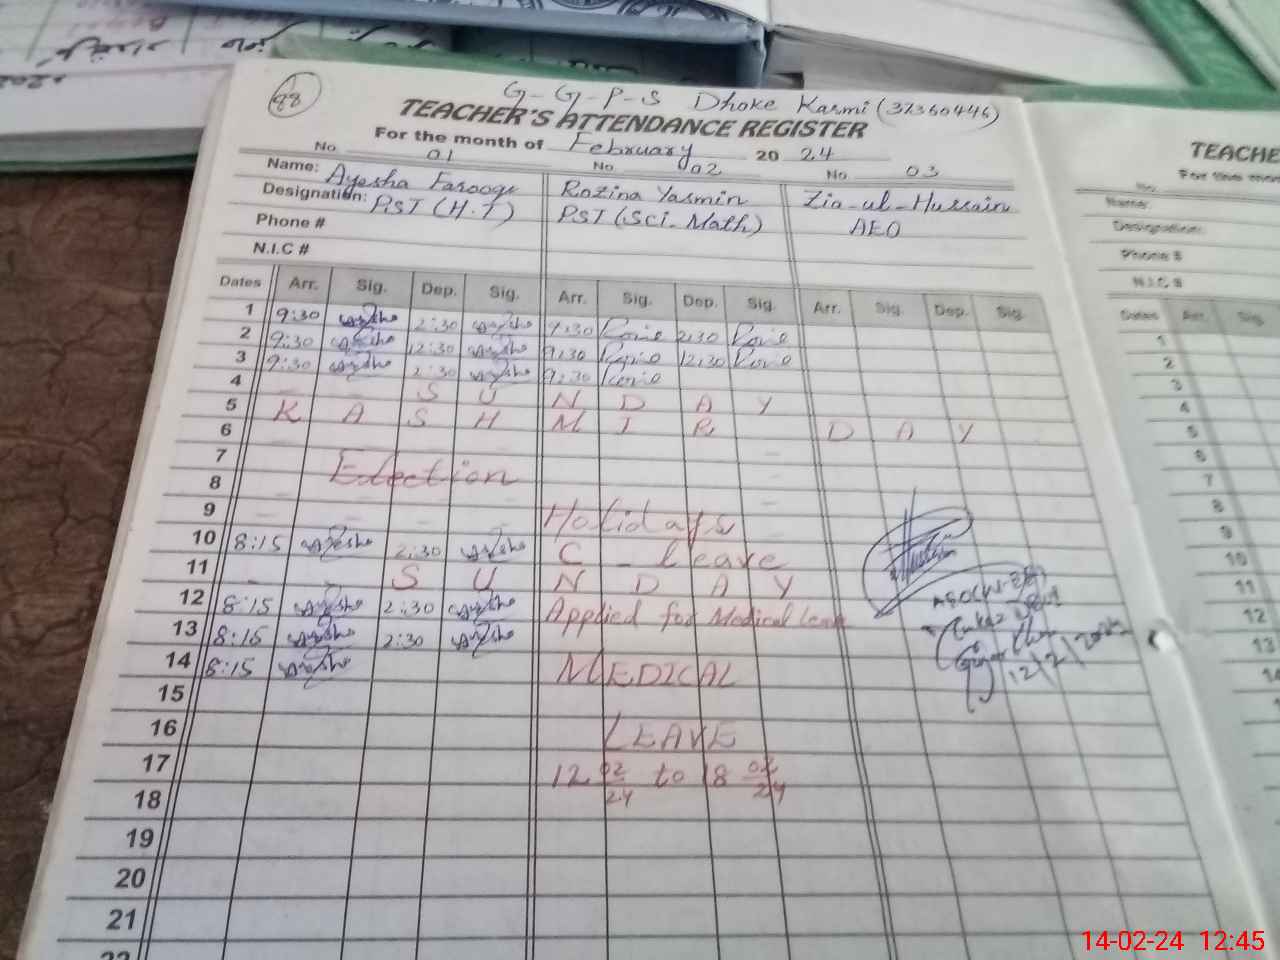 88
G-G-P-S Dhoke Karmi (37360446)
TEACHER'S ATTENDANCE REGISTER
For the month of February 20 24
No 01 No 02 No 03
Name: Ayesha Farooqe Rozina Yasmin Zia-ul-Hussain
Designation: PST (H.T) PST (Sci. Math) AEO
Phone #
N.I.C #
Dates Arr. Sig. Dep. Sig. Arr. Sig. Dep. Sig. Arr. Sig. Dep. Sig.
1 9:30 Ayesha 2:30 Ayesha 9:30 2:30
2 9:30 Ayesha 12:30 Ayesha 9:30 12:30
3 9:30 Ayesha 2:30 Ayesha 9:30
4 S U N D A Y
5 K A S H M I R D A Y
6
7
8 Election
9 Holidays
10 8:15 Ayesha 2:30 Ayesha C - Leave
11 S U N D A Y
12 8:15 Ayesha 2:30 Ayesha Applied for Medical leave
13 8:15 Ayesha 2:30 Ayesha
14 8:15 Ayesha MEDICAL
15
16 LEAVE
17 12 02/24 to 18 02/24
18
19
20
21
22
12/2/2024
TEACHE
For the mon
No
Name:
Designation:
Phone #
N.I.C #
Dates Arr. Sig.
1
2
3
4
5
6
7
8
9
10
11
12
13
14-02-24 12:45